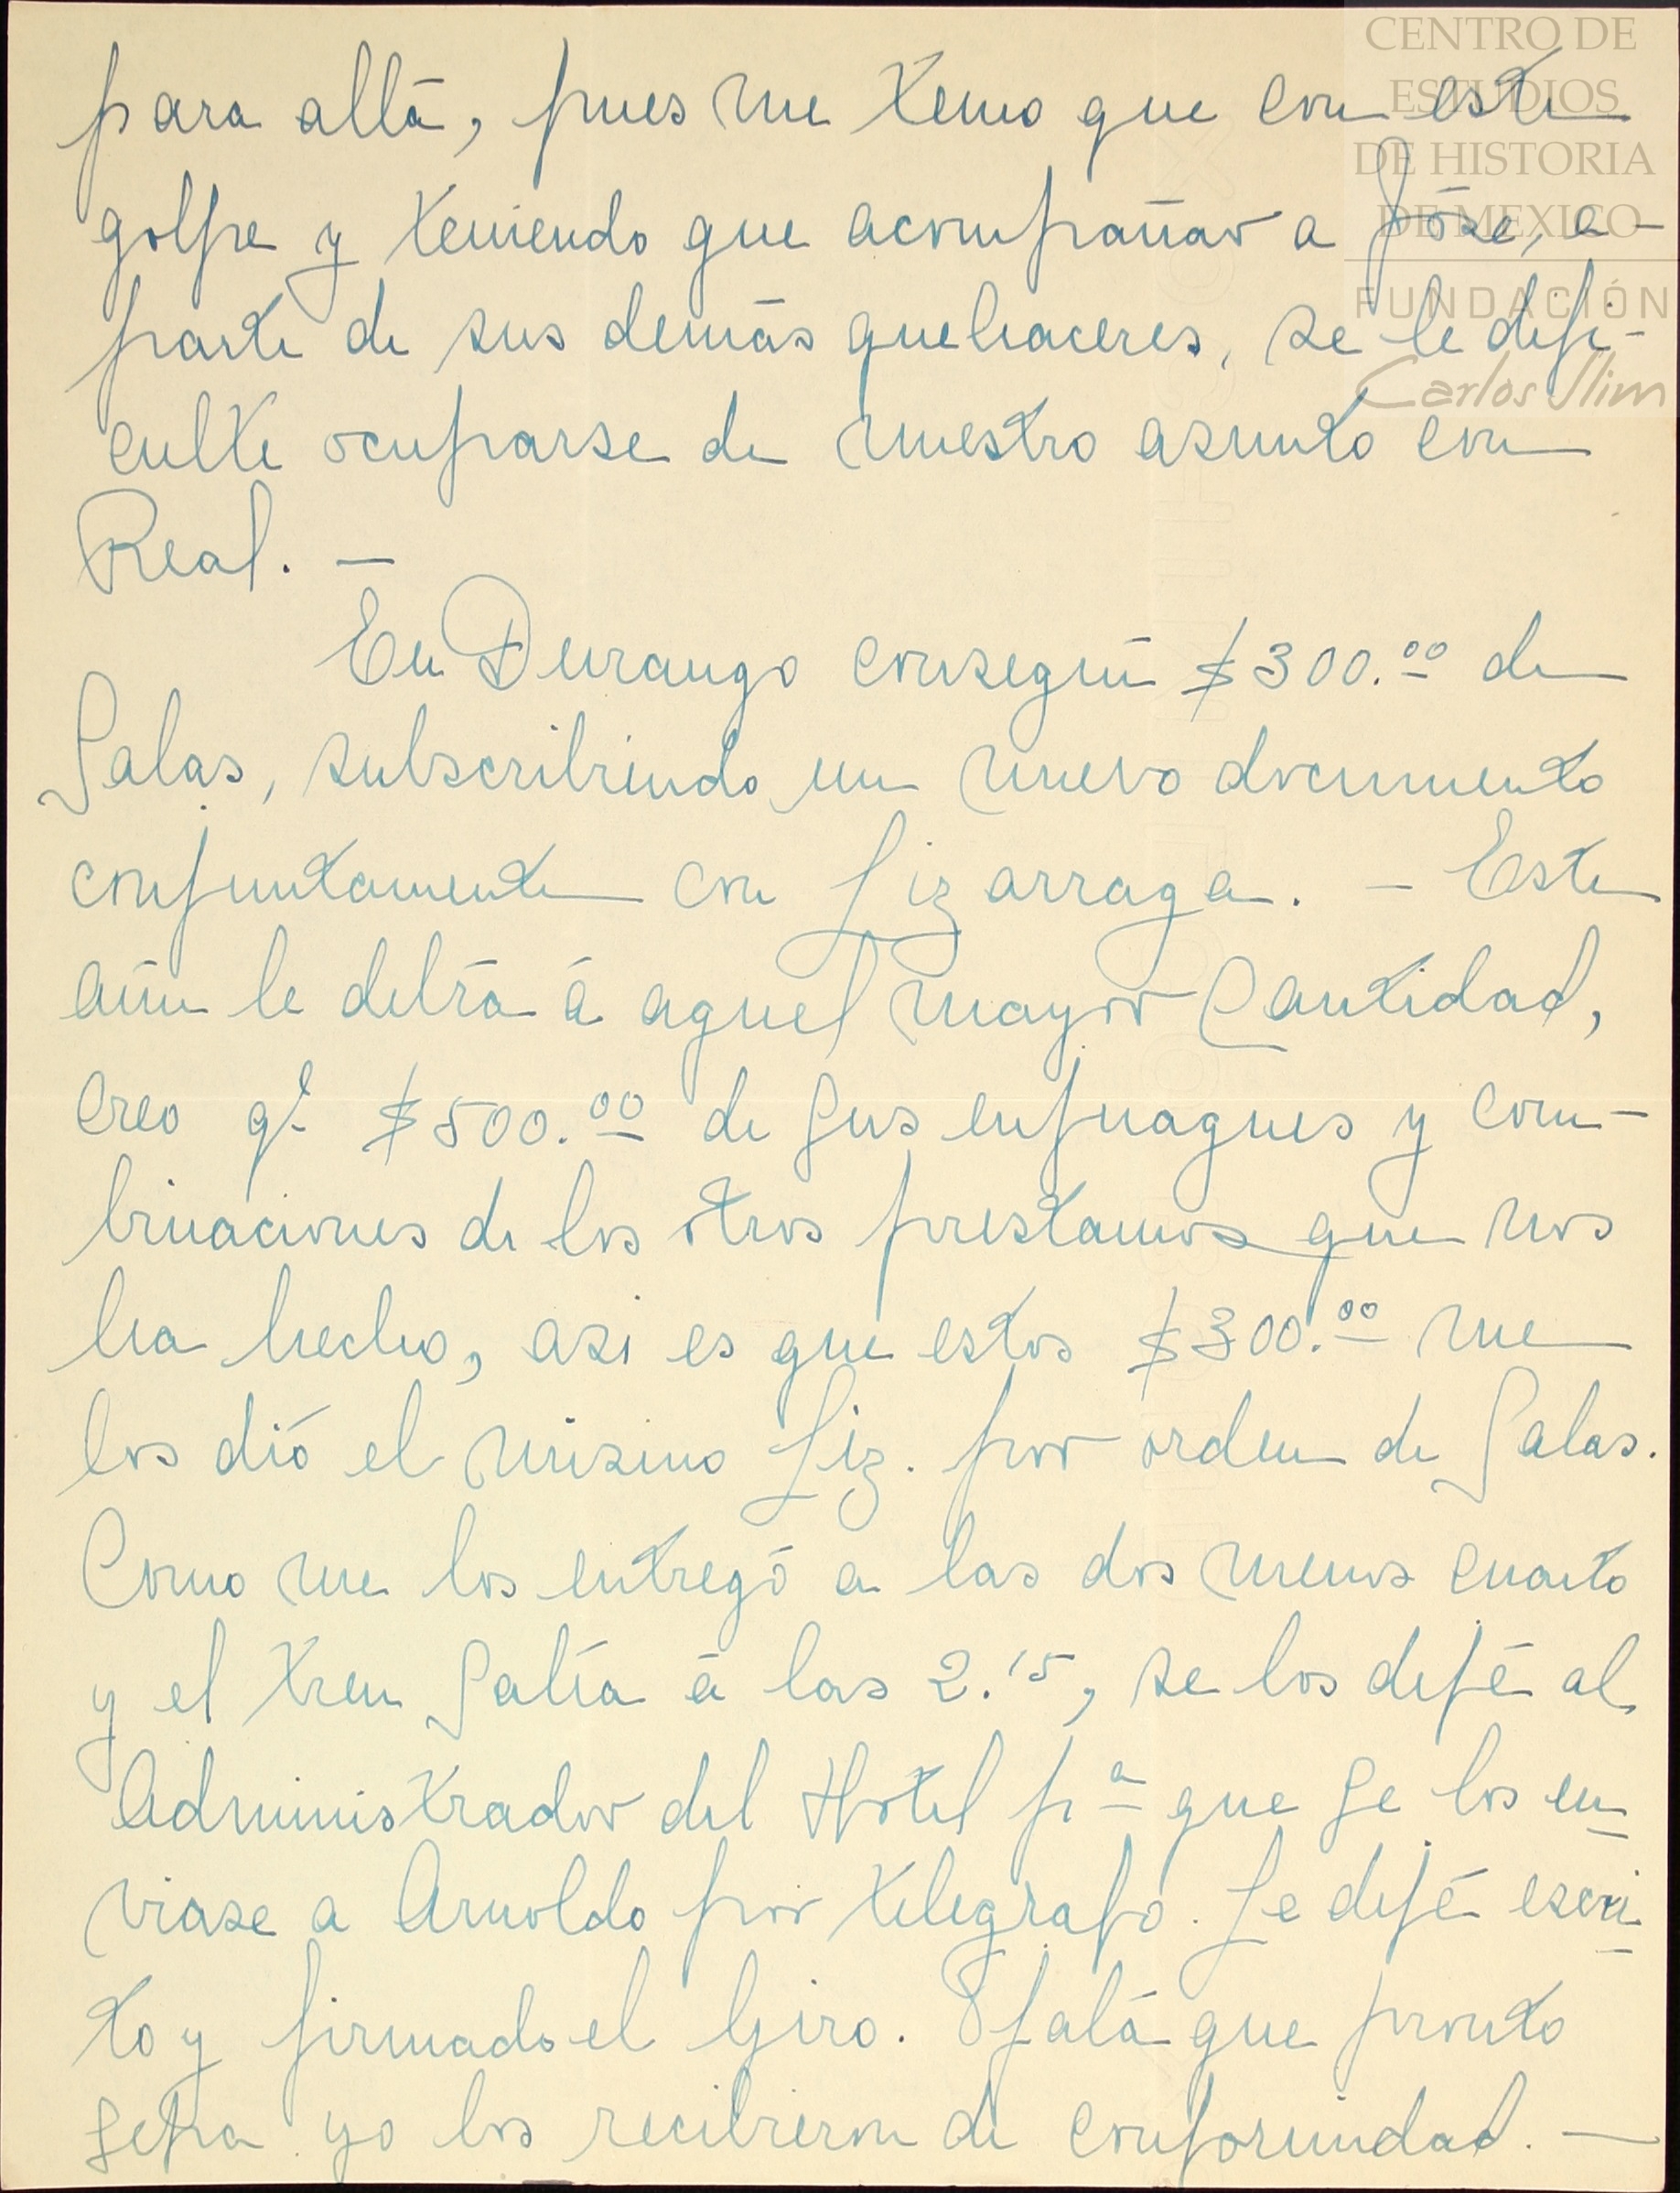 CENTRO DE
ESTUDIOS
DE HISTORIA
DE MEXICO
FUNDACIÓN
Carlos Slim
para allá, pues me temo que con este
golpe y teniendo que acompañar a Jóse, a-
parte de sus demás quehaceres, se le difi-
culte ocuparse de nuestro asunto con
Real. —
En Durango conseguí $300.00 de
Salas, subscribiendo un nuevo documento
conjuntamente con Lizarraga. — Este
aún le debía á aquel mayor Cantidad,
creo qe $500.00 de sus enjuagues y com-
binaciones de los otros prestamos que nos
ha hecho, asi es que estos $300.00 me
los dió el mismo Liz. por orden de Salas.
Como me los entregó a las dos menos cuarto
y el tren Salía á las 2.15, se los dejé al
Administrador del Hotel pa que se los en
viase a Arnoldo por telegrafo. Le dejé escri
to y firmado el Giro. Ojalá que pronto
sepa yo los recibieron de conformidad. —